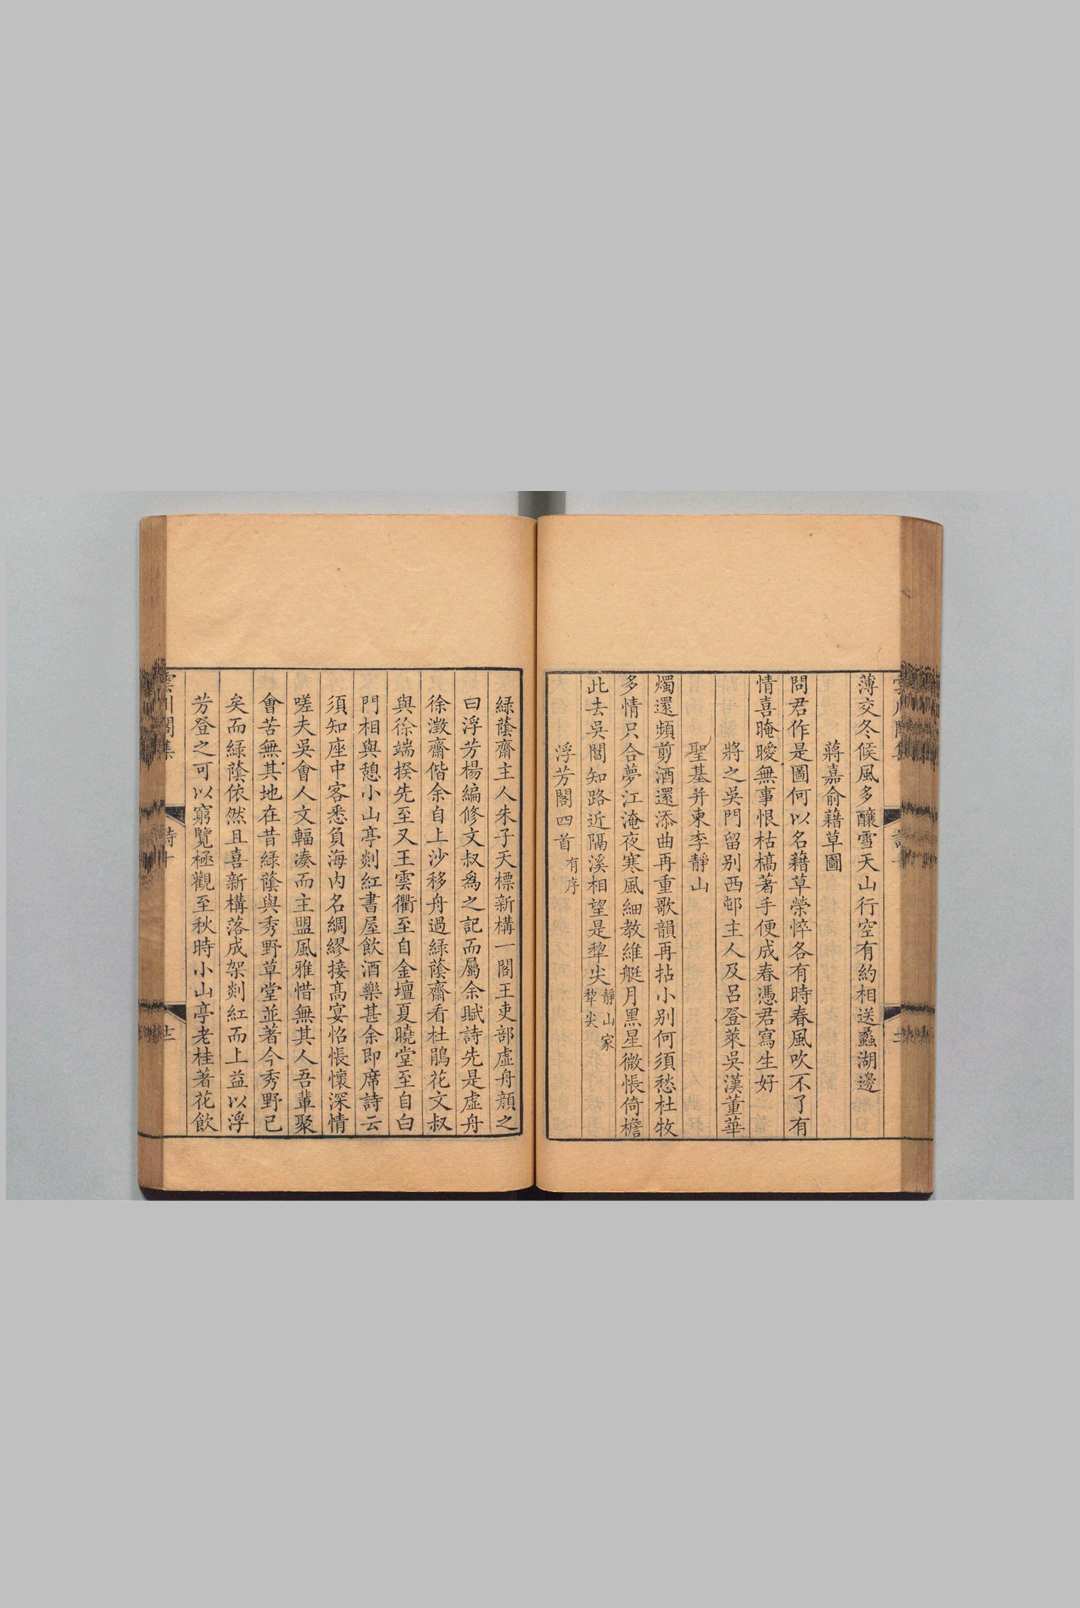 薄交冬候風多釀雪天山行空有約相送蠡湖邊
蔣嘉俞藉草圖
問君作是圖何以名藉草榮悴各有時春風吹不了有
情喜晻曖無事恨枯槁著手便成春憑君寫生好
將之吳門留别西邨主人及呂登萊吳漢董華
聖基并柬李靜山
燭還頻剪酒還添曲再重歌韻再拈小别何須愁杜牧
多情只合夢江淹夜寒風細教維艇月黑星微悵倚檐
此去吳閶知路近隔溪相望是犂尖靜山家犂尖
浮芳閣四首有序
綠蔭齋主人朱子天標新構一閣王吏部虛舟顏之
曰浮芳楊編修文叔爲之記而屬余賦詩先是虛舟
徐澂齋偕余自上沙移舟過綠蔭齋看杜鵑花文叔
與徐端揆先至又王雲衢至自金壇夏曉堂至自白
門相與憩小山亭剡紅書屋飲酒樂甚余即席詩云
須知座中客悉負海内名綢繆接高宴惝悵懷深情
嗟夫吳會人文輻湊而主盟風雅惜無其人吾輩聚
會苦無其地在昔綠蔭與秀野草堂並著今秀野已
矣而綠蔭依然且喜新構落成架剡紅而上益以浮
芳登之可以窮覽極觀至秋時小山亭老桂著花飲
雲川閣集
詩十